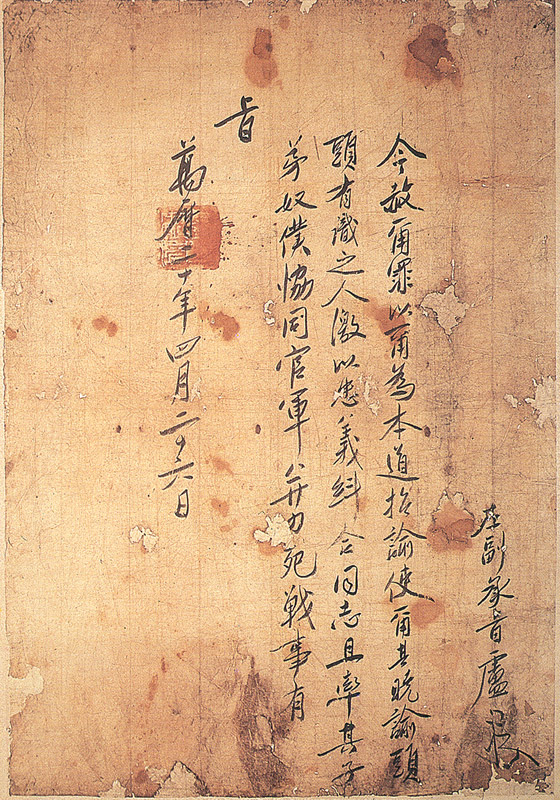 左副承旨盧
今赦爾罪以爾為本道招諭使爾其曉諭頭
頭有識之人激以忠義糾合同志且率其子
弟奴僕協同官軍并力死戰事有
旨
萬曆二十年四月二十六日